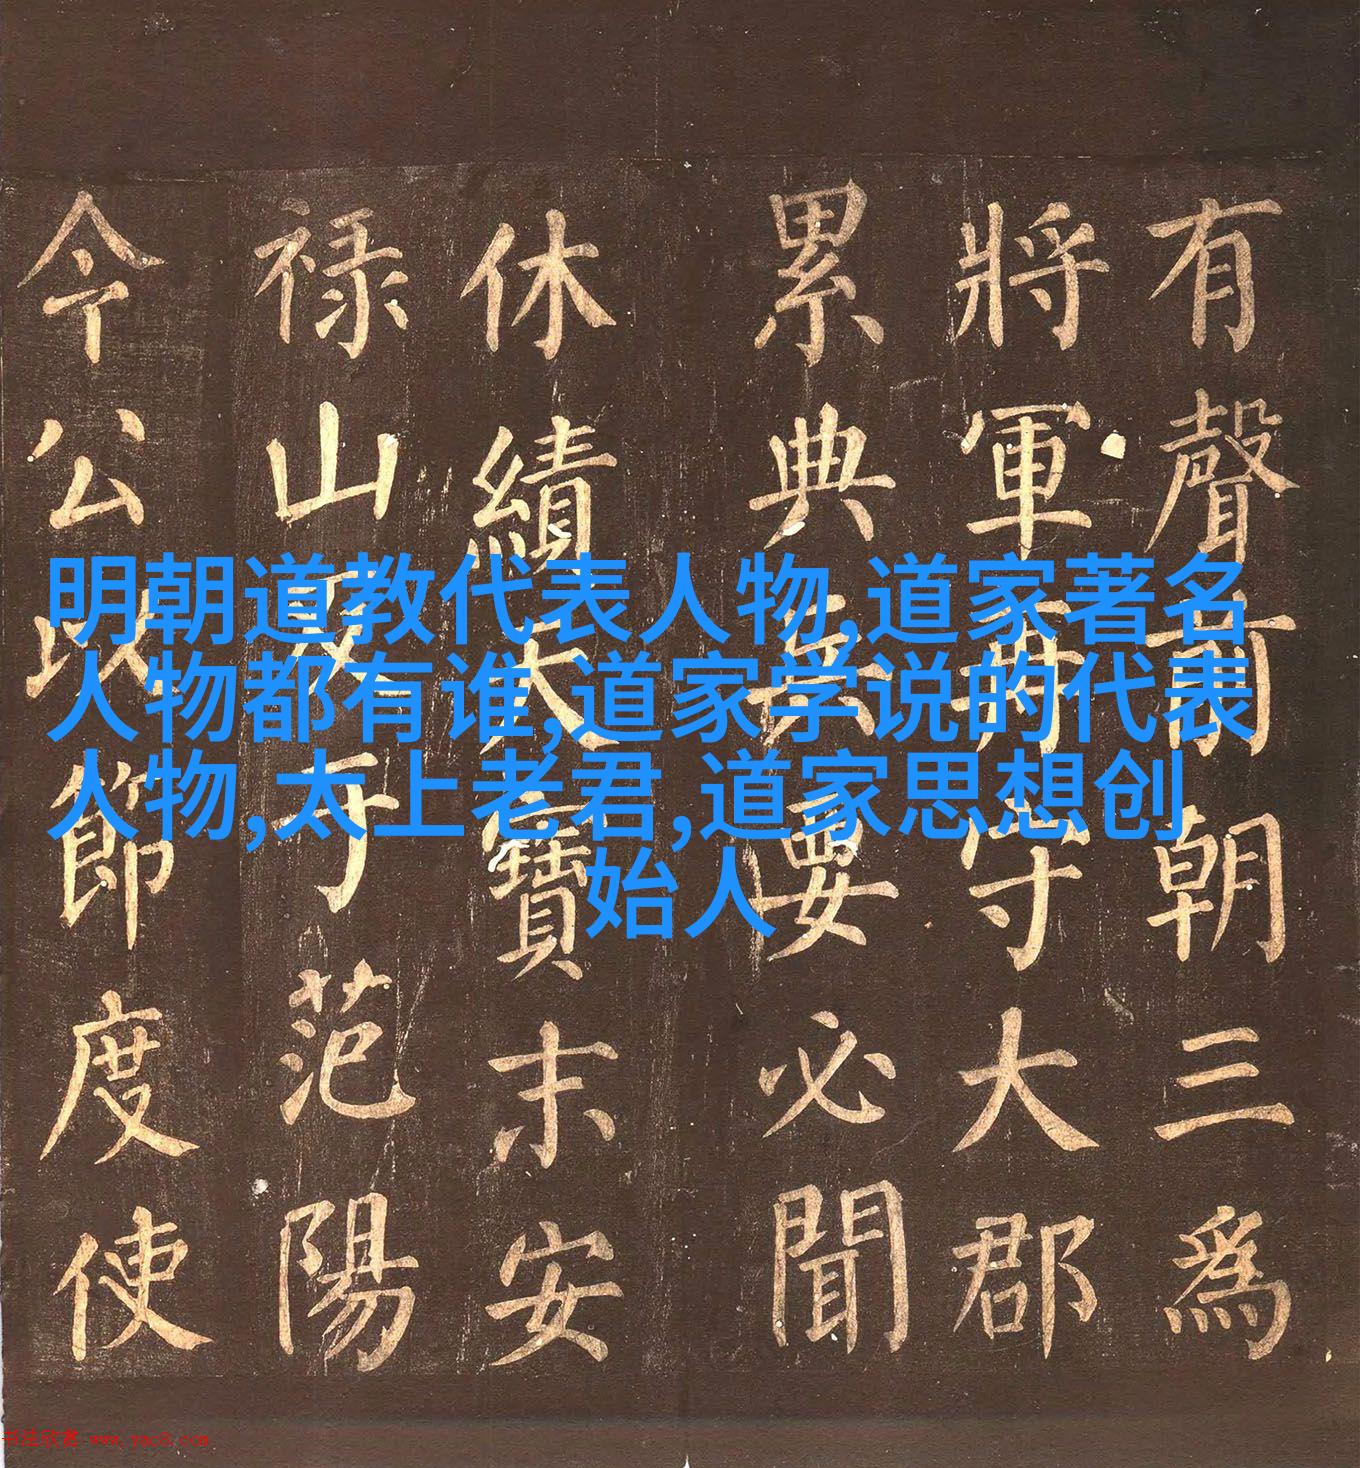 明朝道教代表人物,道家著名
人物都有谁,道家学说的代表
人物,太上老君,道家思想创
始人
有聲前朝三為
將軍再守大郡
累典兵要必聞
休績天寶末安
禄山反于范陽
今公以節度使
书法欣赏 www.yac8.com